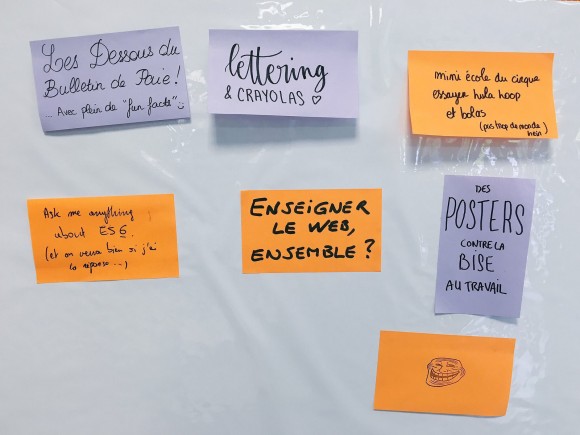 Les Dessous du
Bulletin de Paie!
... Avec plein de "fun facts"
lettering
& CRAYOLAS ♡
mini école du cirque
essayer hula hoop
et bolas
(pas trop de monde hein)
Ask me anything
about ES6
(et on verra bien si j'ai
la réponse ...)
ENSEIGNER
LE WEB,
ENSEMBLE ?
DES
POSTERS
CONTRE LA
BISE
AU TRAVAIL